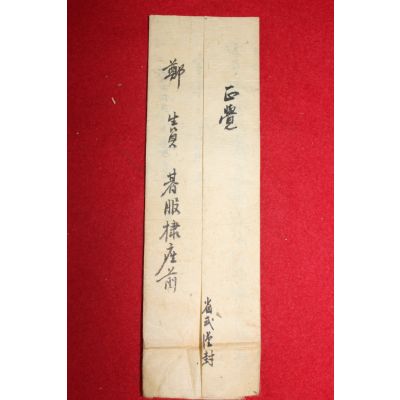 正覺
省式謹封
鄭 生員 朞服棣座前